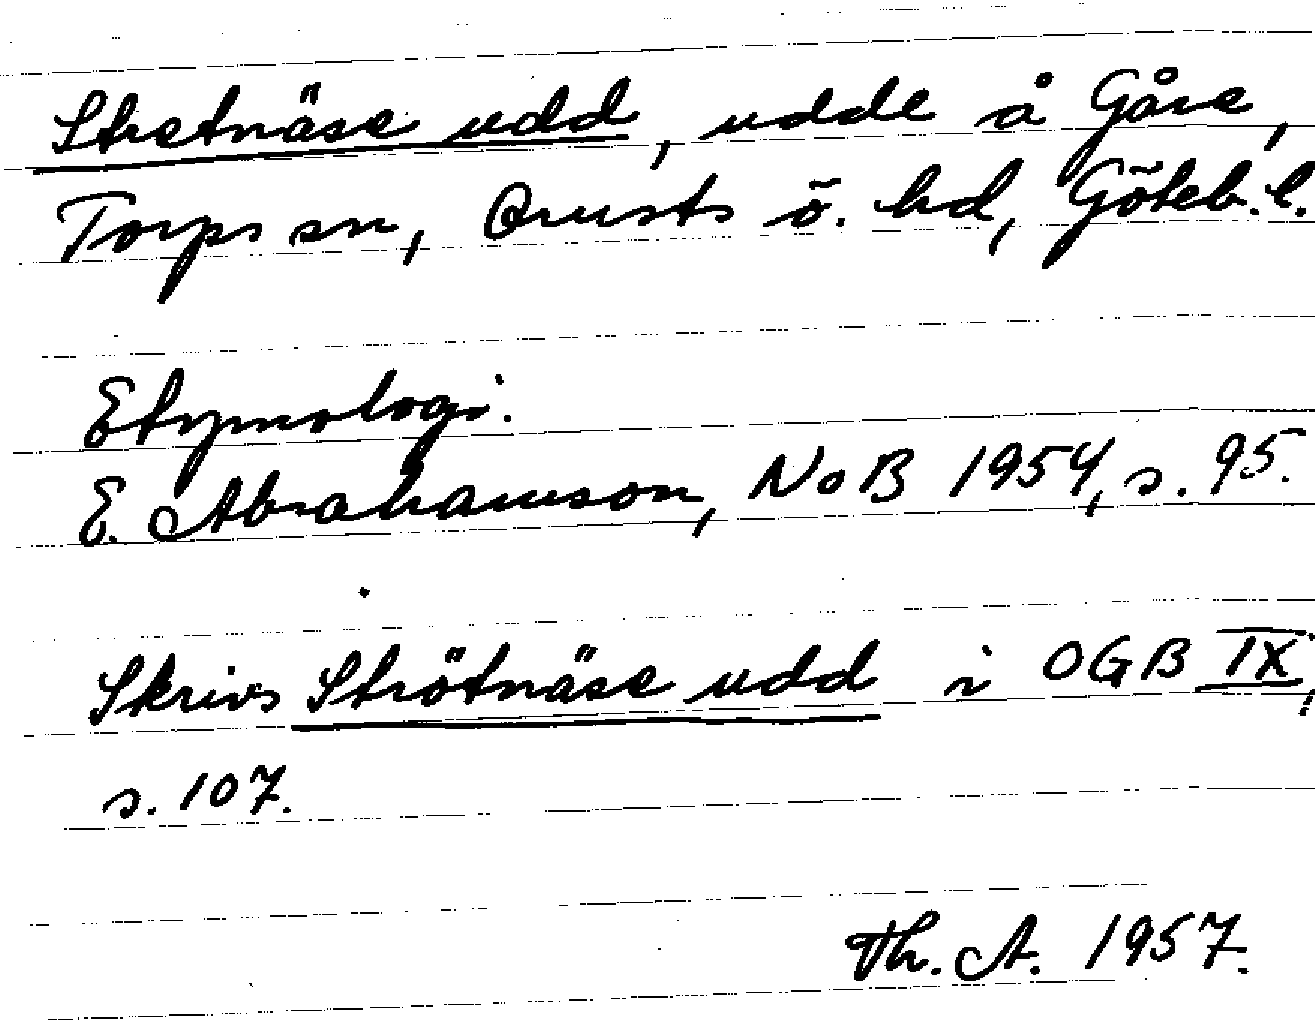 Stretnäse udd, udde å Gåre,
Torps sn, Orusts ö. hd, Göteb. l.
Etymologi.
E. Abrahamson, NoB 1954, s. 95.
Skrivs Strötnäse udd i OGB IX,
s. 107.
Th. A. 1957.